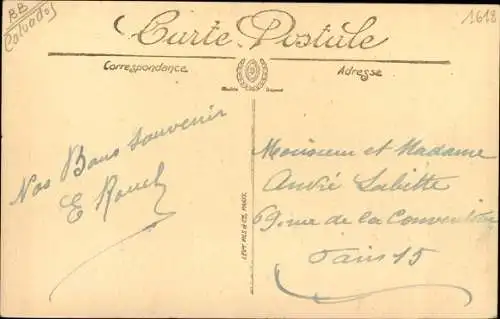 BB
Calvados
1618
Carte Postale
Correspondance
Adresse
Nos Bons souvenir
E
LEVY FILS & CIE, PARIS
Monsieur et Madame
André Labitte
69 rue de la Convention
Paris 15